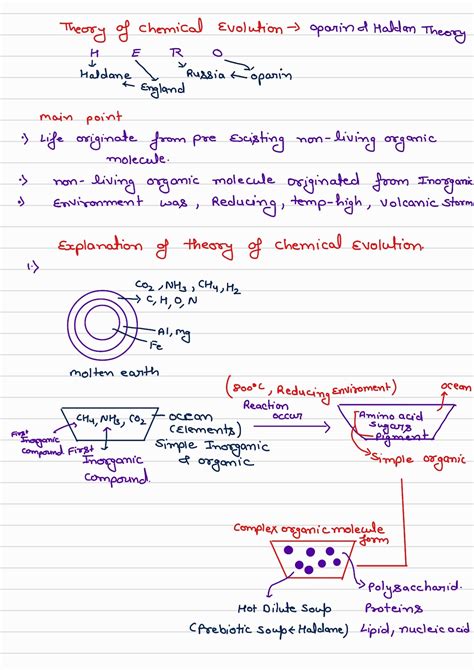 Theory of chemical Evolution → oparin & Haldan Theory
H E R O
Haldane ← England Russia ← oparin
main point
Life originate from pre existing non-living organic
molecule.
non-living organic molecule originated from Inorganic
Environment was, Reducing, temp-high, volcanic storm
Explanation of theory of chemical Evolution.
1.)
CO2, NH3, CH4, H2
C, H, O, N
Al, mg
Fe
molten earth
(800°C, Reducing Enviroment)
ocean
Reaction
occur
CH4, NH3, CO2
ocean
(Elements)
Simple Inorganic
& organic
First
Inorganic
compound
First
Inorganic
Compound.
Amino acid
sugars
Pigment
Simple organic
Complex organic molecule
form
Polysaccharid.
Proteins
Lipid, nucleic acid
Hot Dilute Soup
(Prebiotic soup ← Haldane)